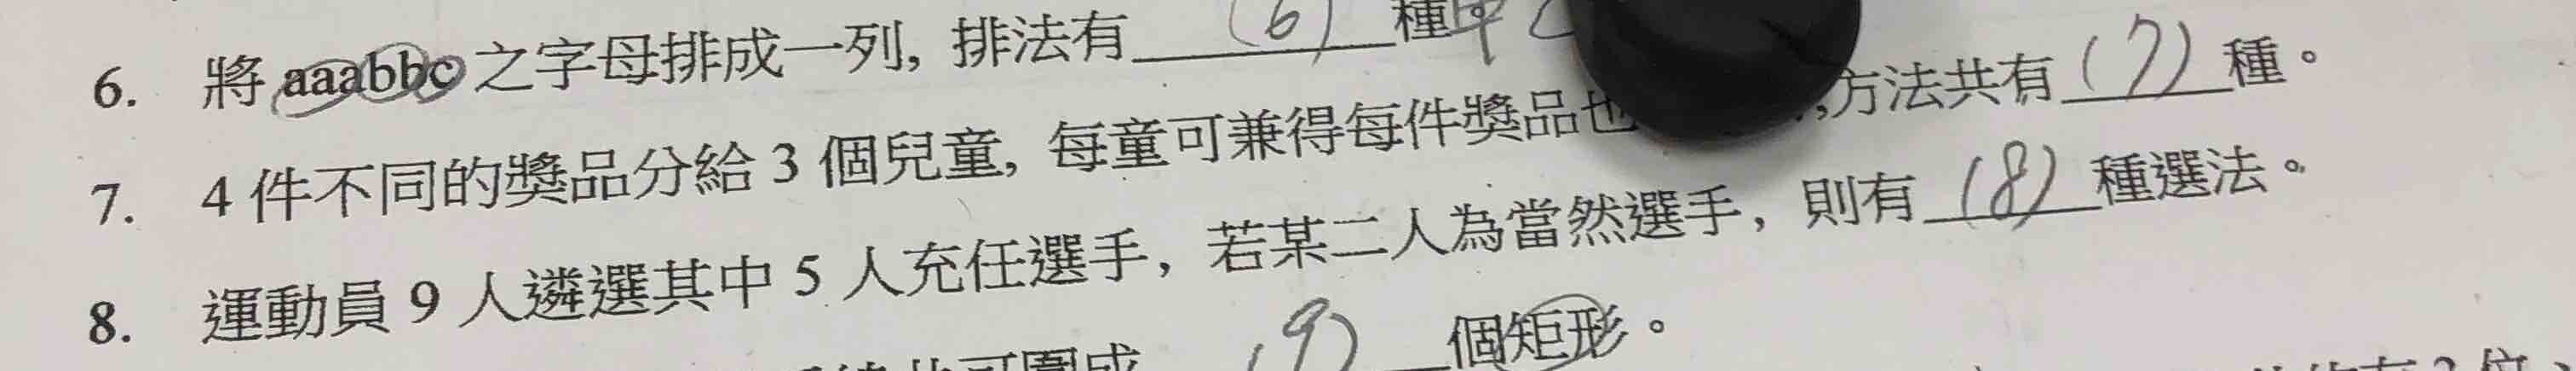 6. 將 aaabbc 之字母排成一列, 排法有 (6) 種。
7. 4 件不同的獎品分給 3 個兒童, 每童可兼得每件獎品也 ,方法共有 (7) 種。
8. 運動員 9 人遴選其中 5 人充任選手, 若某二人為當然選手, 則有 (8) 種選法。
可圍成 (9) 個矩形。